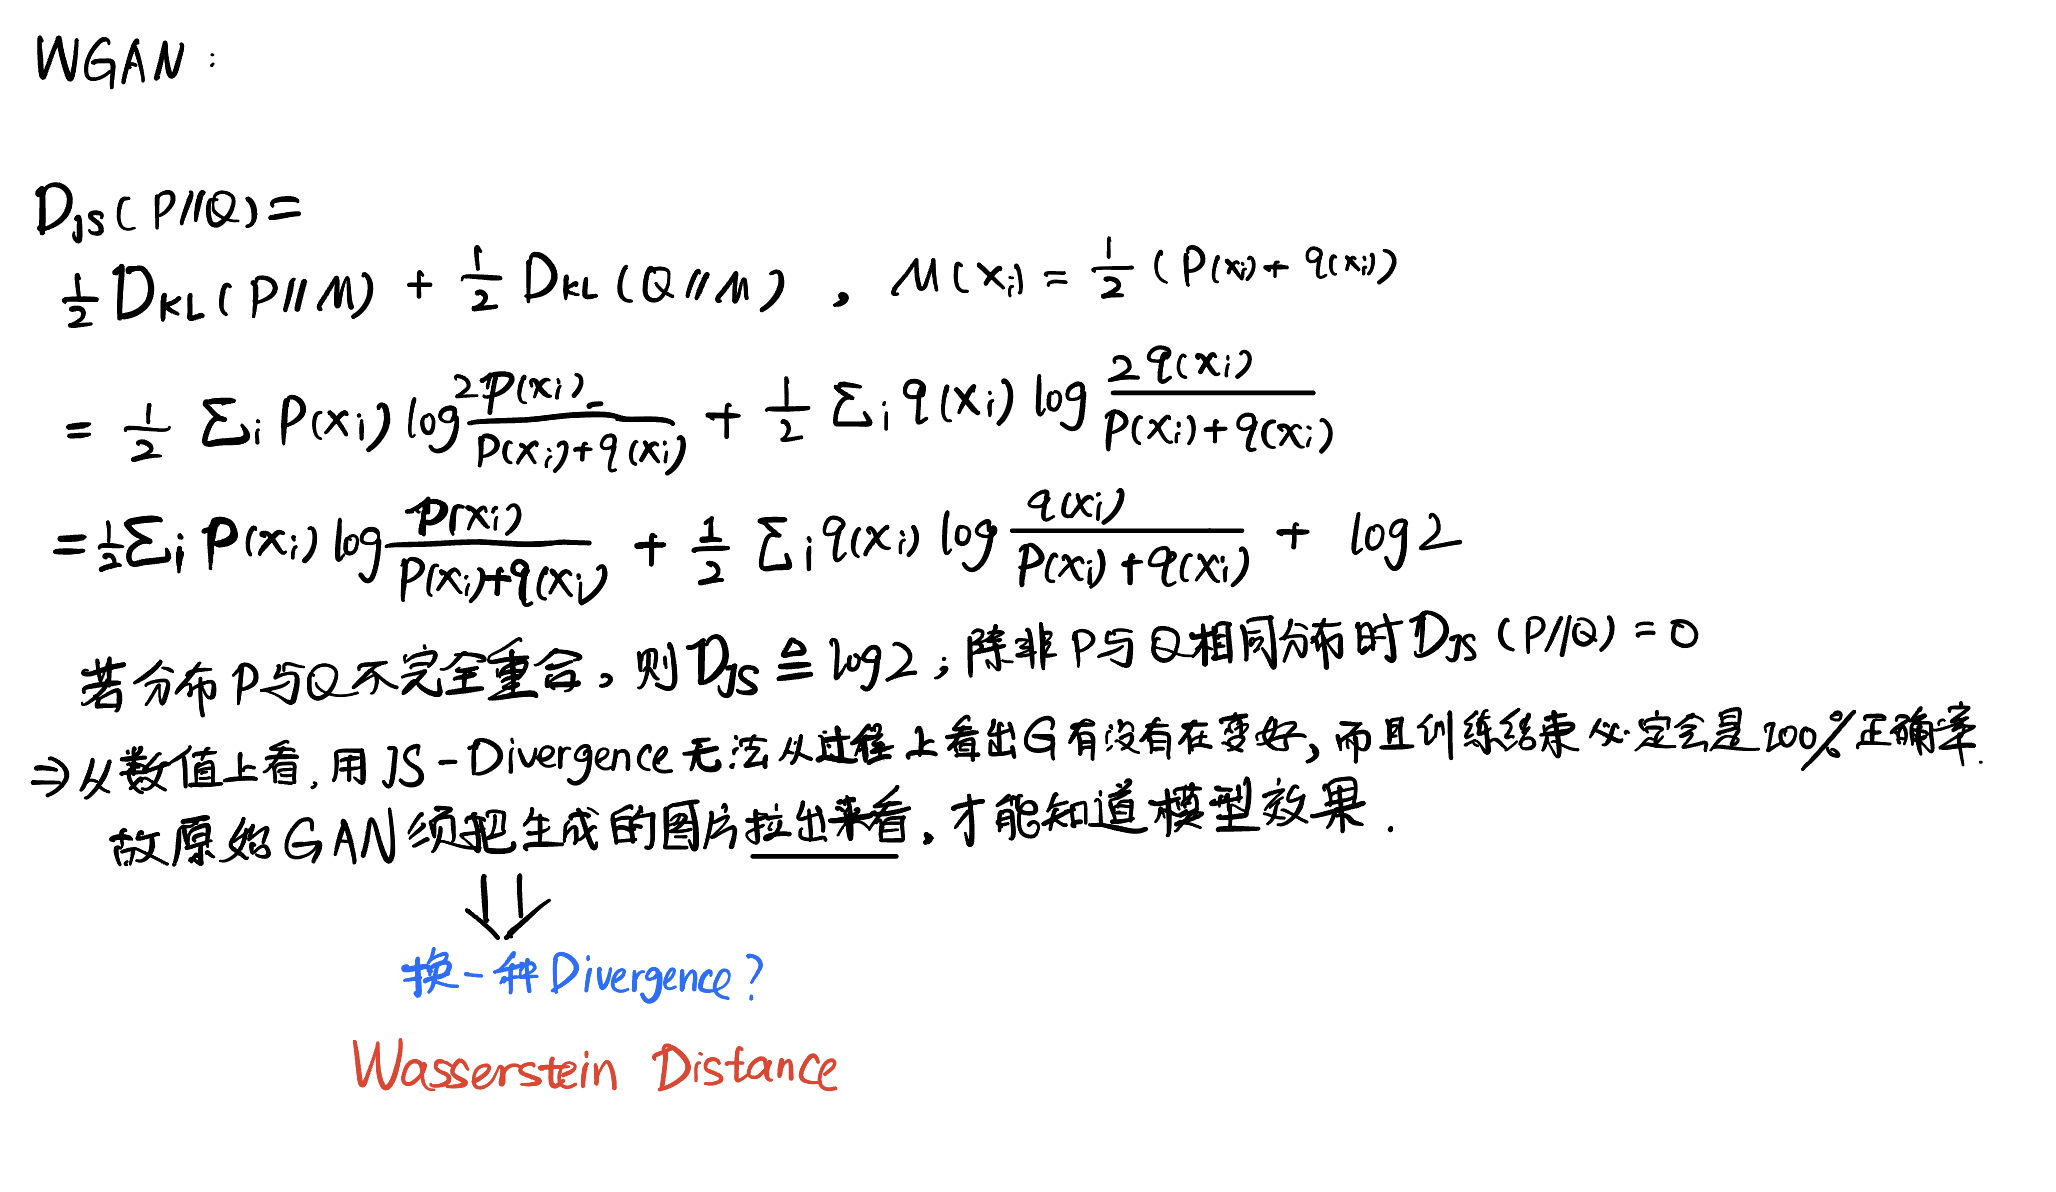 WGAN：
D_JS(P//Q)=
½ D_KL(P//M) + ½ D_KL(Q//M)，M(xᵢ) = ½ (P(xᵢ)+q(xᵢ))
= ½ Σᵢ P(xᵢ) log 2P(xᵢ)/(P(xᵢ)+q(xᵢ)) + ½ Σᵢ q(xᵢ) log 2q(xᵢ)/(P(xᵢ)+q(xᵢ))
= ½ Σᵢ P(xᵢ) log P(xᵢ)/(P(xᵢ)+q(xᵢ)) + ½ Σᵢ q(xᵢ) log q(xᵢ)/(P(xᵢ)+q(xᵢ)) + log2
若分布P与Q不完全重合，则D_JS ≙ log2；除非P与Q相同分布时D_JS(P//Q)=0
⇒从数值上看，用JS-Divergence无法从过程上看出G有没有在变好，而且训练结束必定会是100%正确率.
故原始GAN须把生成的图片拉出来看，才能知道模型效果.
⇓
换一种Divergence?
Wasserstein Distance